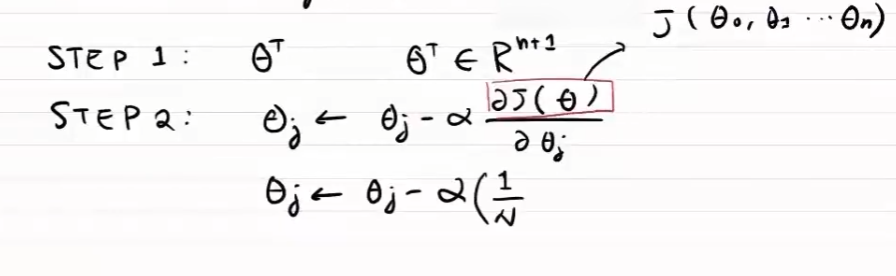 J ( θ₀, θ₁ ⋯ θₙ)
STEP 1 : θᵀ θᵀ ∈ Rⁿ⁺¹
STEP 2 : θⱼ ← θⱼ - α ∂J(θ) / ∂θⱼ
θⱼ ← θⱼ - α ( 1/N